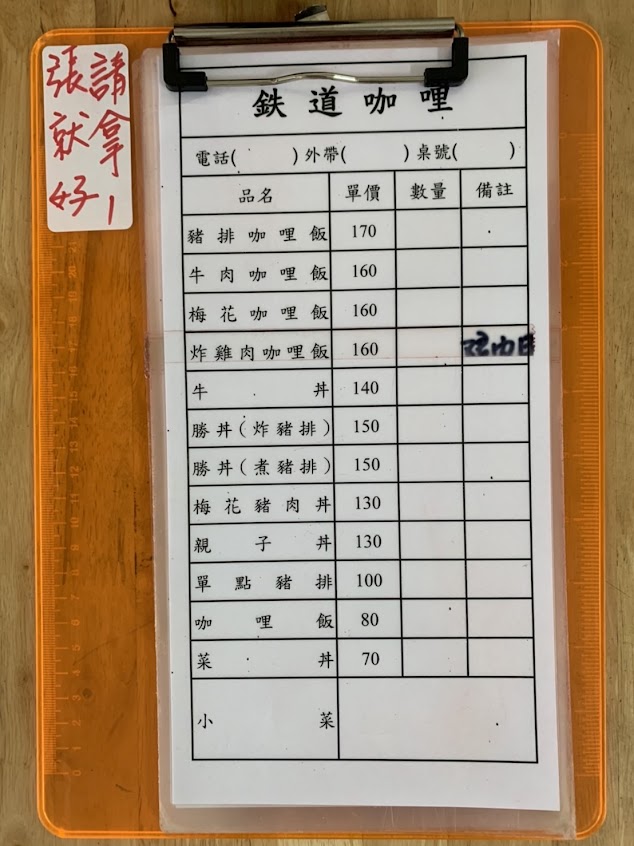 請拿
張就好!
鉄道咖哩
電話( )外帶( )桌號( )
品名 單價 數量 備註
豬排咖哩飯 170
牛肉咖哩飯 160
梅花咖哩飯 160
炸雞肉咖哩飯 160
牛丼 140
勝丼(炸豬排) 150
勝丼(煮豬排) 150
梅花豬肉丼 130
親子丼 130
單點豬排 100
咖哩飯 80
菜丼 70
小菜